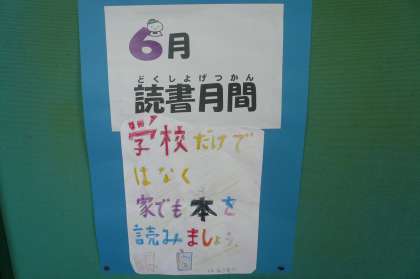 6月
どくしょげつかん
読書月間
学校だけで
はなく
家でも本を
読みましょう。